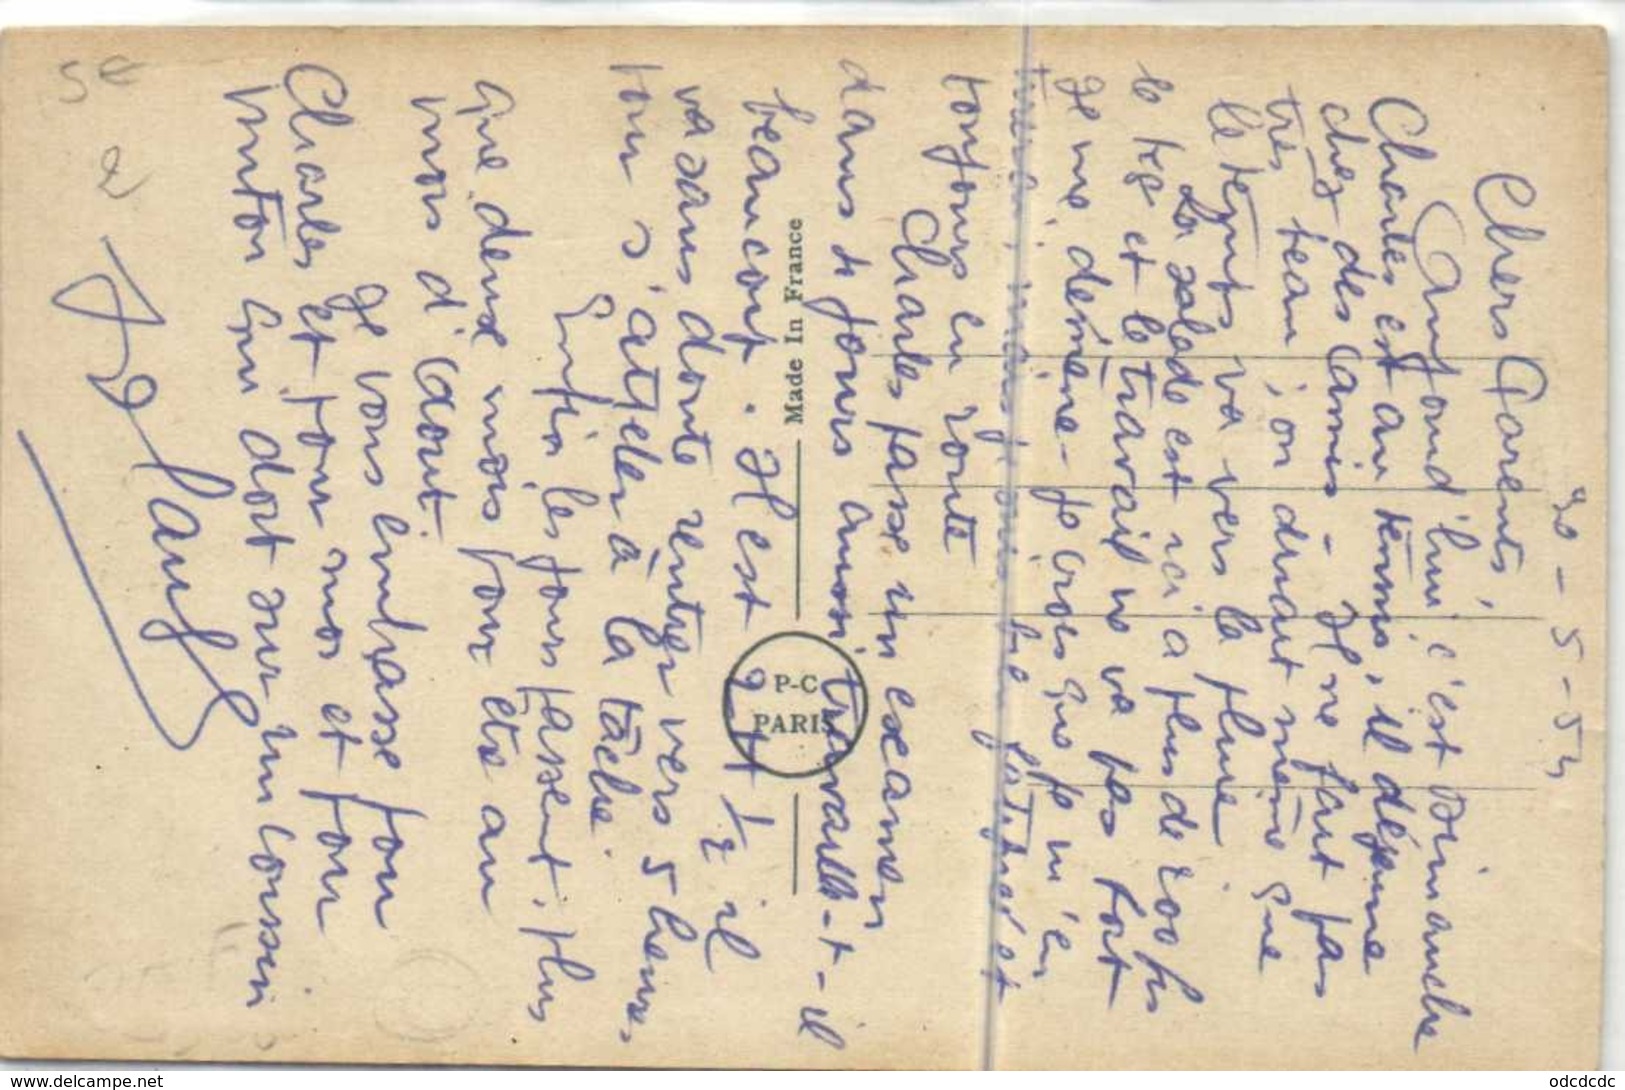 30-5-54
Chers Parents,
Aujourd'hui c'est Dimanche
Charles est au tennis, il déjeune
chez des amis - Il ne fait pas
très beau, on dirait même que
le temps va vers la pluie
La salade est ici a plus de 200 frs
le kg et le travail ne va pas fort
Je me démène - je crois que je m'en
mais je suis fatigué et
toujours en route
Charles passe un examen
dans 4 jours aussi travaille-t-il
beaucoup. Il est 9 h 1/2 il
va sans doute rentrer vers 5 heures
pour s'atteler à la tâche.
Enfin les jours passent, plus
que deux mois pour être au
mois d'Aout.
Je vous embrasse pour
Charles et pour moi et pour
qui dort sur un coussin
P-C
PARIS
Made In France
www.delcampe.net
odcdcdc